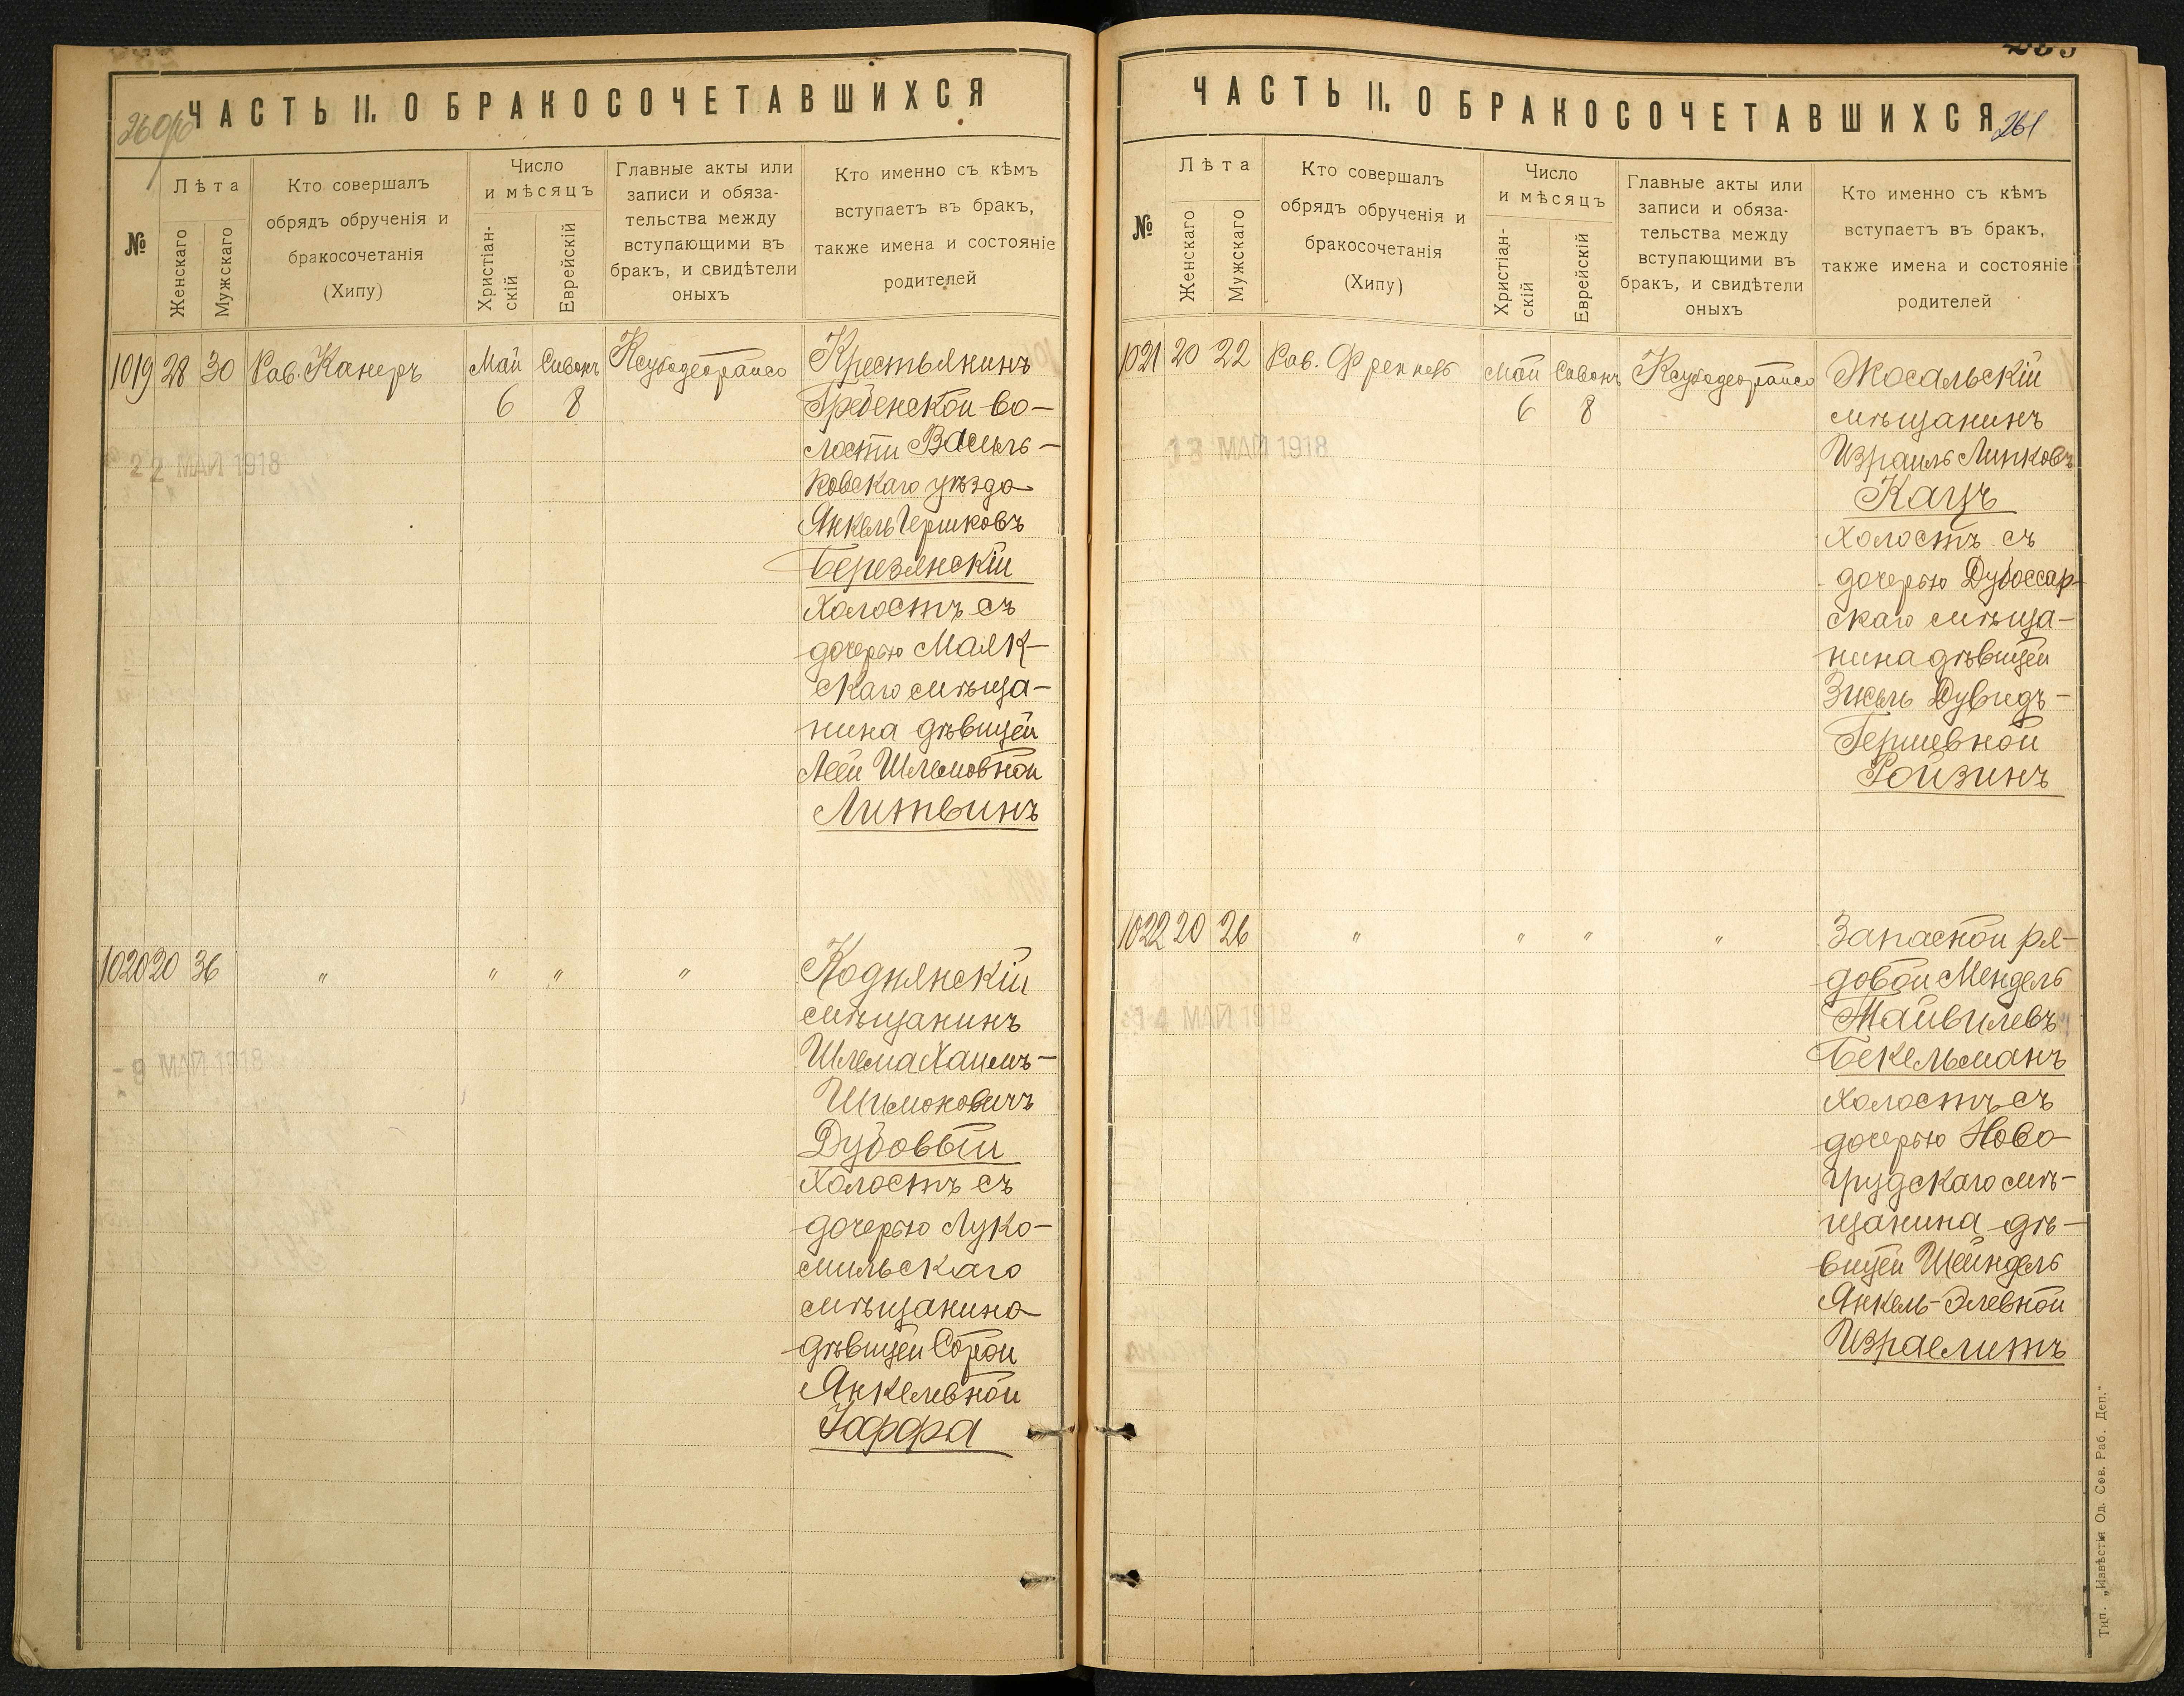 260об
ЧАСТЬ II. О БРАКОСОЧЕТАВШИХСЯ
№
Лѣта
Женскаго
Мужскаго
Кто совершалъ
обрядъ обрученія и
бракосочетанія
(Хипу)
Число
и мѣсяцъ
Христіан-
скій
Еврейскій
Главные акты или
записи и обяза-
тельства между
вступающими въ
бракъ, и свидѣтели
оныхъ
Кто именно съ кѣмъ
вступаетъ въ бракъ,
также имена и состояніе
родителей
1019 28 30 Рав. Канеръ Май Сивонъ Ксубодеорайсо Крестьянинъ
6 8 Гребенской во-
лости Василь-
22 МАЙ 1918
ковскаго уѣзда
Янкель Гершковъ
Березянскій
Холостъ съ
дочерью Маяк-
скаго мѣща-
нина дѣвицей
Леей Шлемовной
Литвинъ
1020 20 36 " " " " Коднянскій
мѣщанинъ
Шлема Хаимъ-
- 9 МАЙ 1918
Шимоновичъ
Дубовый
Холостъ съ
дочерью Луко-
мильскаго
мѣщанина
дѣвицей Сорой
Янкелевной
Іоффа
ЧАСТЬ II. О БРАКОСОЧЕТАВШИХСЯ
261
№
Лѣта
Женскаго
Мужскаго
Кто совершалъ
обрядъ обрученія и
бракосочетанія
(Хипу)
Число
и мѣсяцъ
Христіан-
скій
Еврейскій
Главные акты или
записи и обяза-
тельства между
вступающими въ
бракъ, и свидѣтели
оныхъ
Кто именно съ кѣмъ
вступаетъ въ бракъ,
также имена и состояніе
родителей
1021 20 22 Рав. Май Сивонъ Ксубодеорайсо Мосальскій
6 8 мѣщанинъ
13 МАЙ 1918
Израиль Липковъ
Кацъ
Холостъ съ
дочерью Дубоссар-
скаго мѣща-
нина дѣвицей
Зисль Дувидъ-
Гершевной
Ройзинъ
1022 20 26 " " " " Запасной ря-
довой Мендель
Тайвилевъ
14 МАЙ 1918
Бекельманъ
Холостъ съ
дочерью Ново-
грудскаго мѣ-
щанина дѣ-
вицей Шейндель
Янкель-Элевной
Израелитъ
Тип. „Извѣстія Од. Сов. Раб. Деп."